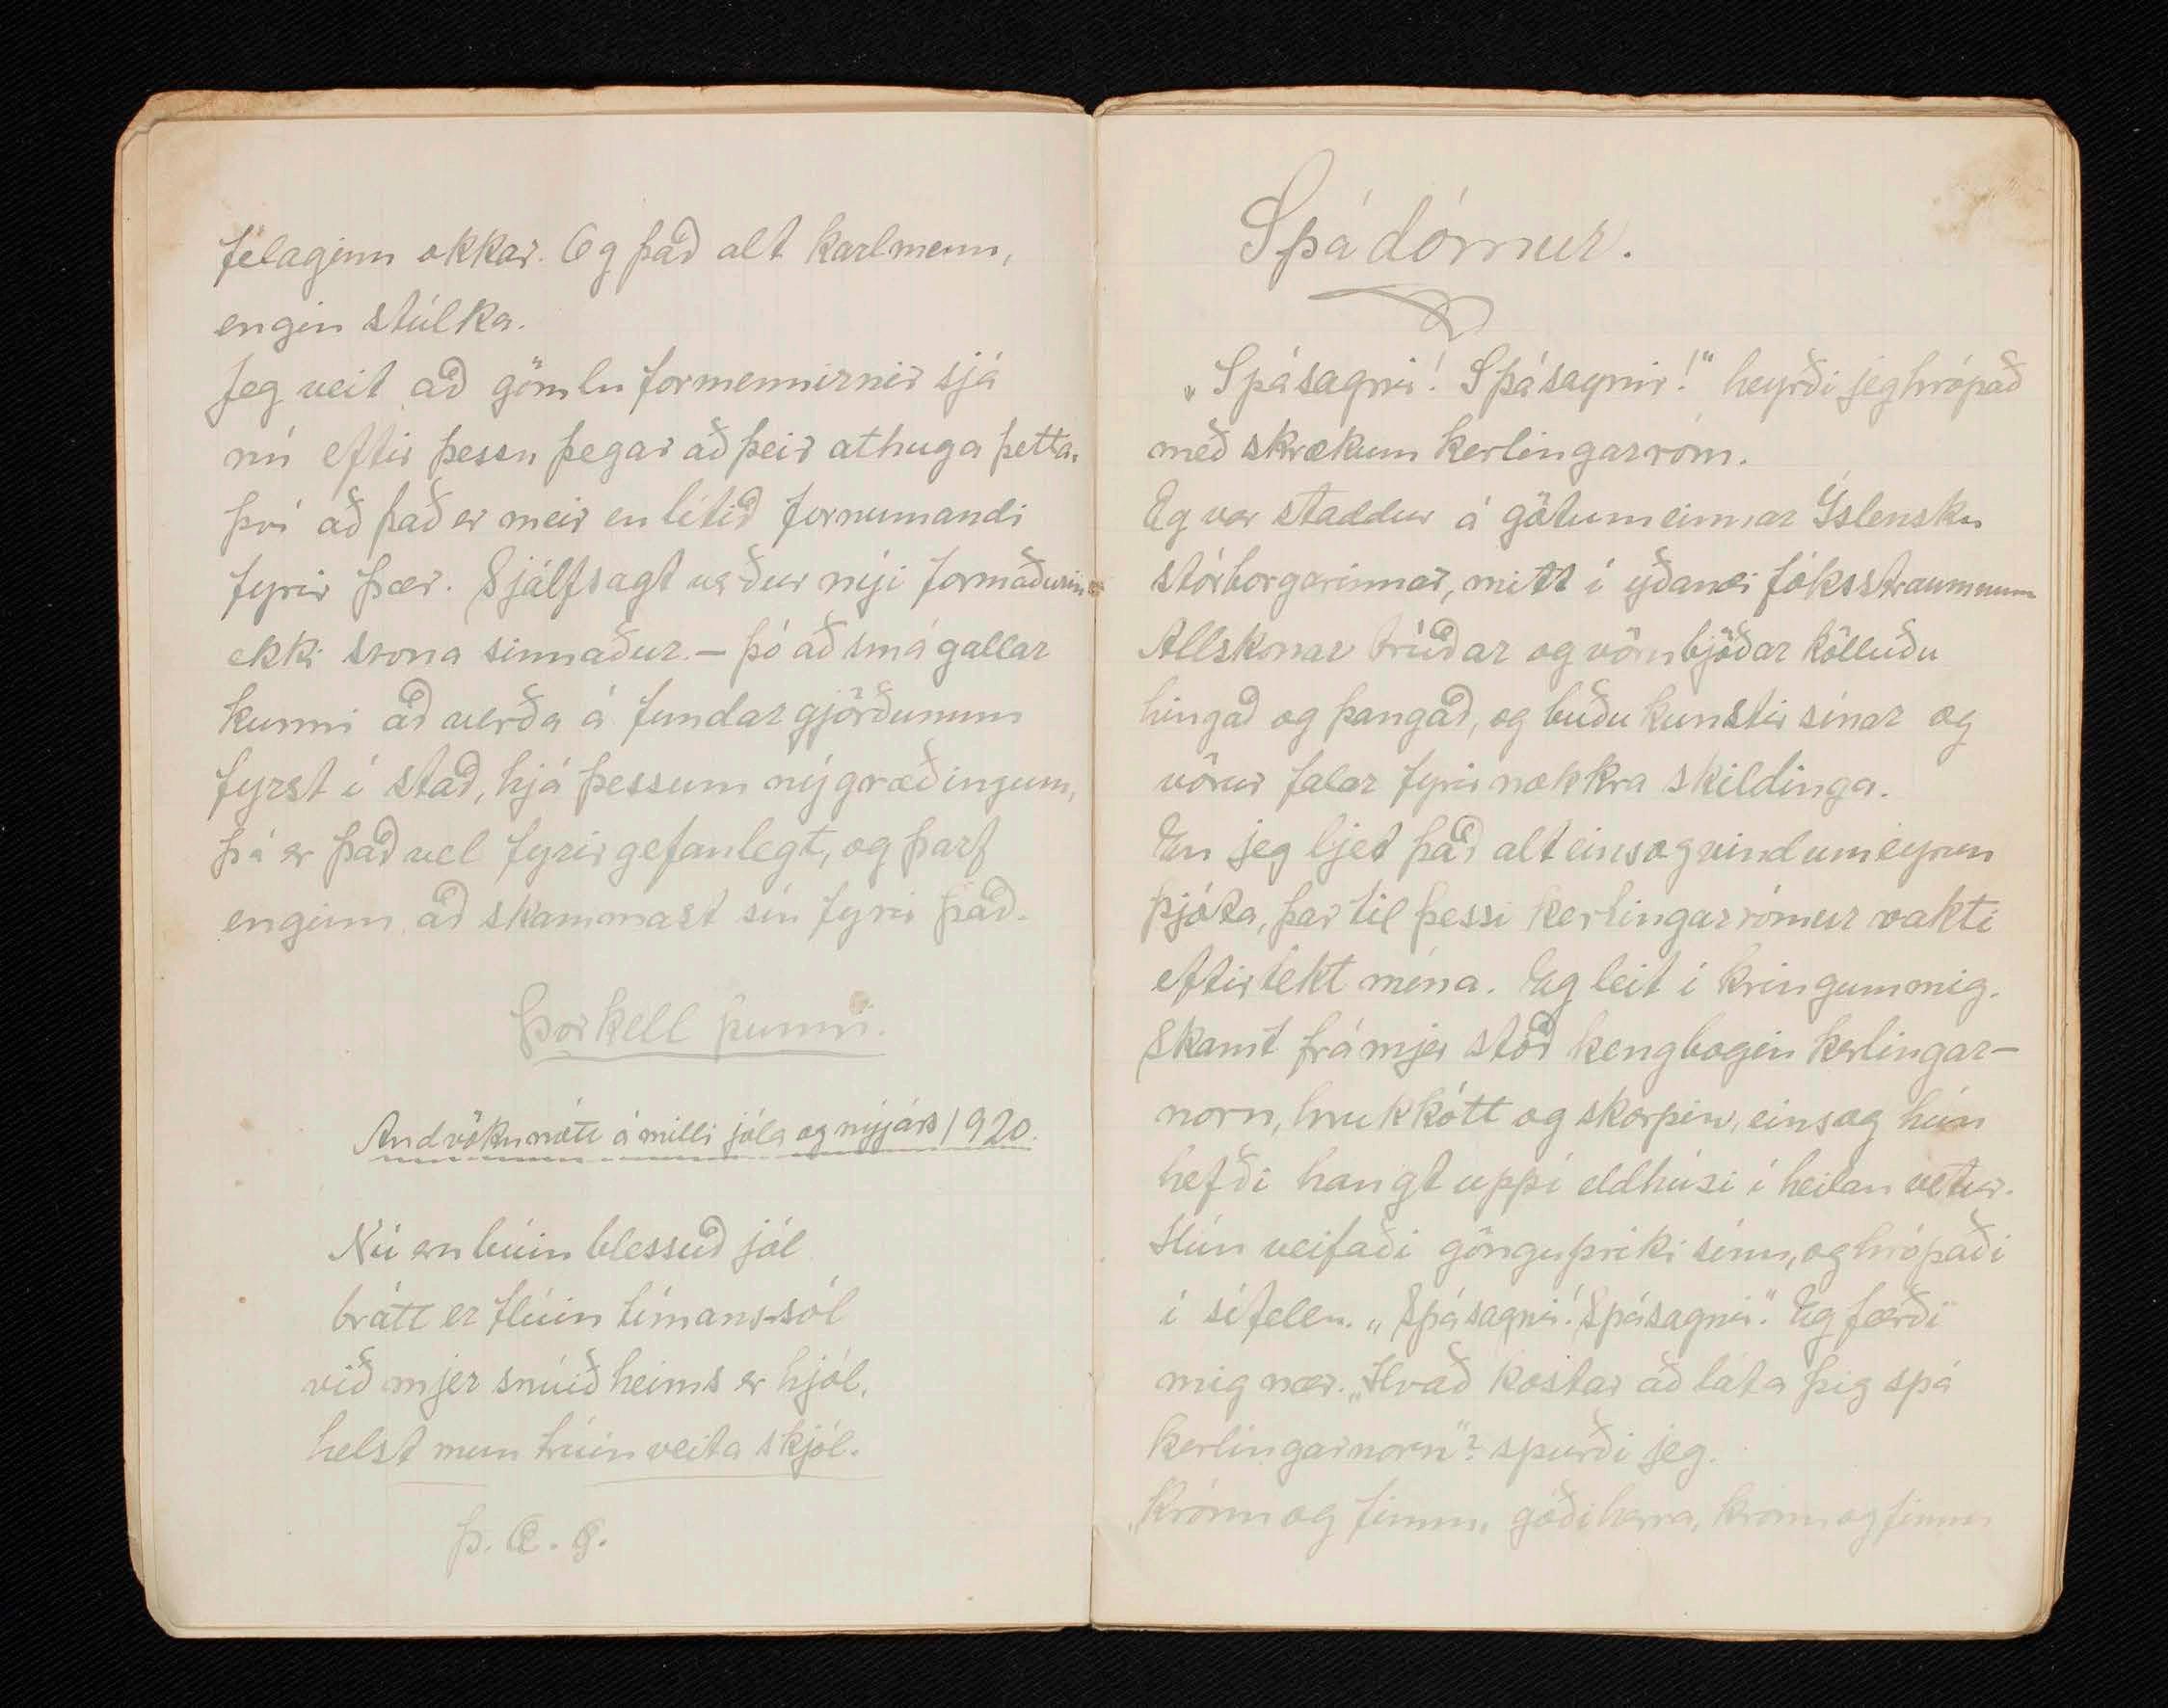 félaginu okkar. Og það alt karlmenn,
engin stúlka.
Jeg veit að gömlu formennirnir sjá
nú eftir þessu þegar að þeir athuga þetta,
því að það er meir en lítið fornumandi
fyrir þær. Sjálfsagt verður nýji formaðurinn
ekki svona sinnaður. – þó að smá gallar
kunni að verða á fundargjörðunum
fyrst í stað, hjá þessum nýgræðingum,
þá er það vel fyrirgefanlegt, og þarf
enginn að skammast sín fyrir það.
Þorkell þunni.
Andvökunótt á milli jóla og nýjárs 1920.
Nú eru búin blessuð jól
brátt er flúin tímans-sól
við mjer snúið heims er hjól,
helst mun trúin veita skjól.
Þ. E. G.
Spádómur.
„Spásagnir! Spásagnir!" heyrði jeg hrópað
með skrækum kerlingarróm.
Eg var staddur á götum einnar Íslensku
stórborgarinnar, mitt í yðandi fóksstraumnum
Allskonar trúðar og vörubjóðar kölluðu
hingað og þangað, og buðu kunstir sínar og
vörur falar fyrir nokkra skildinga.
En jeg ljet það alt eins og vind um eyrun
þjóta, þar til þessi kerlingarrómur vakti
eftirtekt mína. Eg leit í kringum mig.
Skamt frá mjer stóð kengbogin kerlingar-
norn, hrukkótt og skorpin, eins og hún
hefði hangt uppí eldhúsi í heilan vetur.
Hún veifaði göngupriki sínu, og hrópaði
í sífelen. „Spásagnir! Spásagnir". Eg færði
mig nær. „Hvað kostar að láta þig spá
kerlingarnorn"? spurði jeg.
„Krónu og fimm, góði herra, krónu og fimm